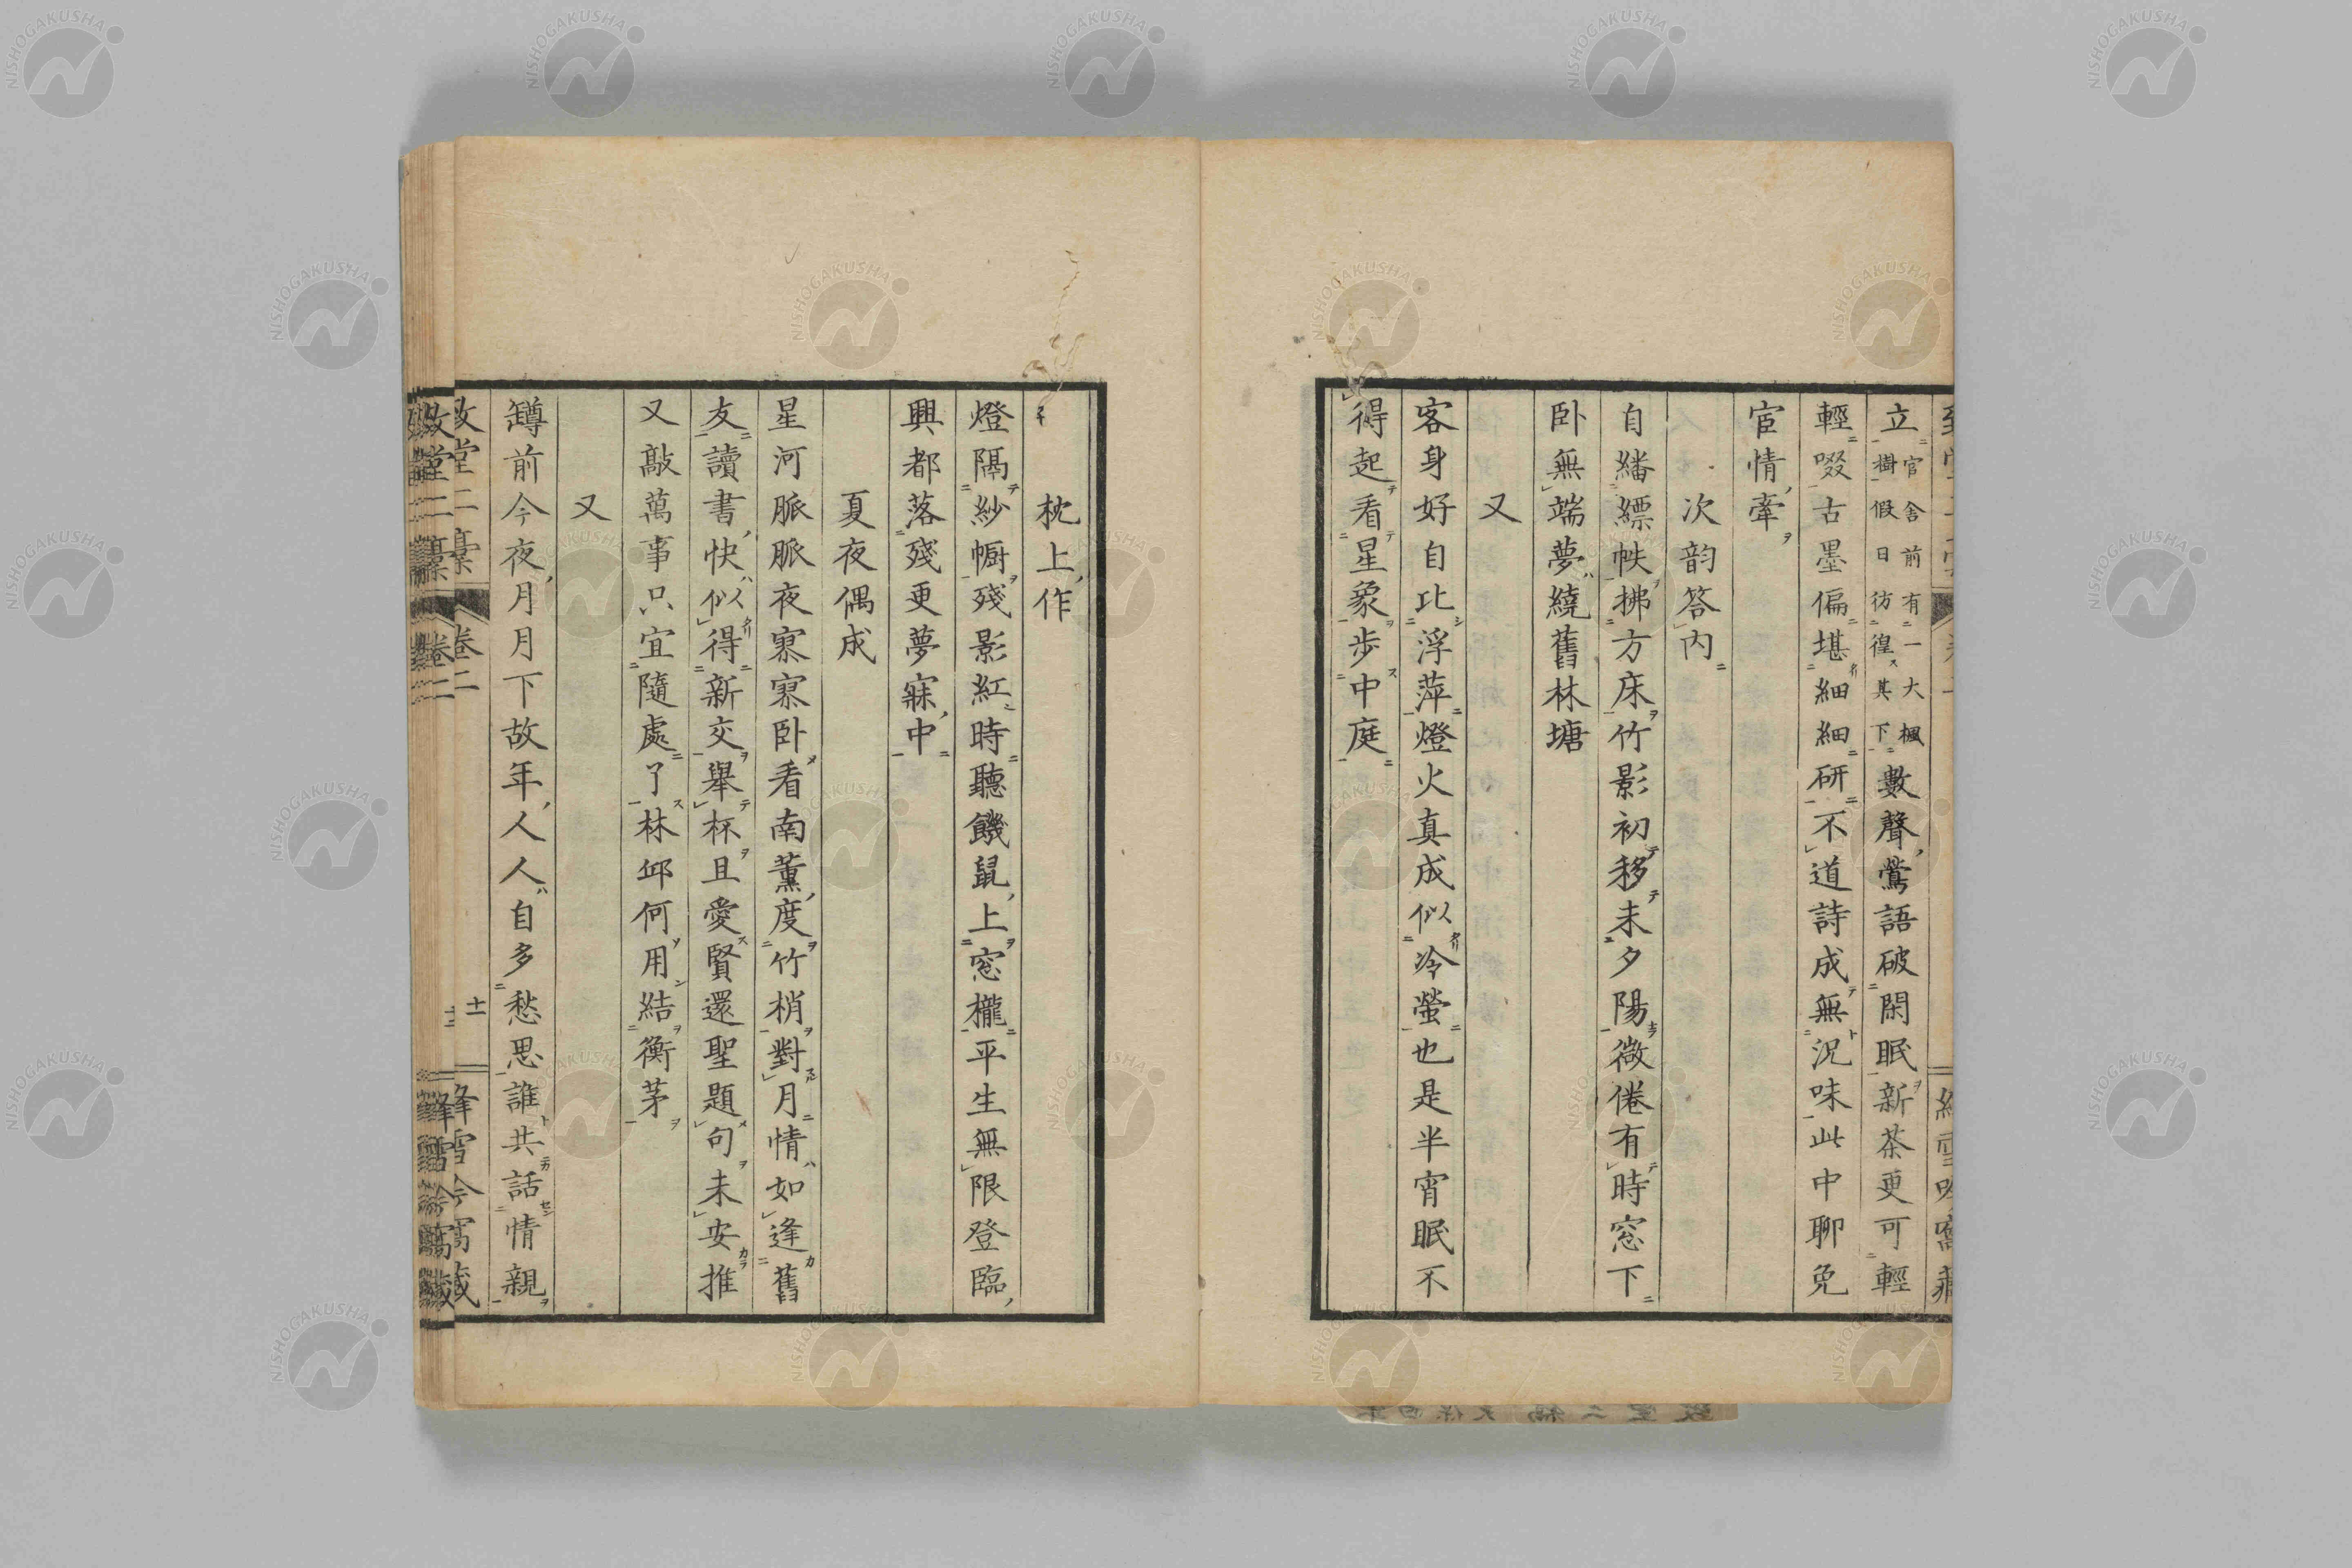 立官舍前有一大楓樹假日彷徨其下數聲鶯語破閑眠新茶更可輕
輕啜古墨偏堪細細研不道詩成無況味此中聊免
宦情牽
次韵答內
自繙縹帙拂方床竹影初移未夕陽微倦有時窓下
卧無端夢繞舊林塘
又
客身好自比浮萍燈火真成似冷螢也是半宵眠不
得起看星象步中庭
枕上作
燈隔紗幮殘影紅時聽饑鼠上窓櫳平生無限登臨
興都落殘更夢寐中
夏夜偶成
星河脈脈夜寥寥卧看南薰度竹梢對月情如逢舊
友讀書快似得新交舉杯且愛賢還聖題句未安推
又敲萬事只宜隨處了林邱何用結衡茅
又
罇前今夜月月下故年人人自多愁思誰共話情親
卷二
十一